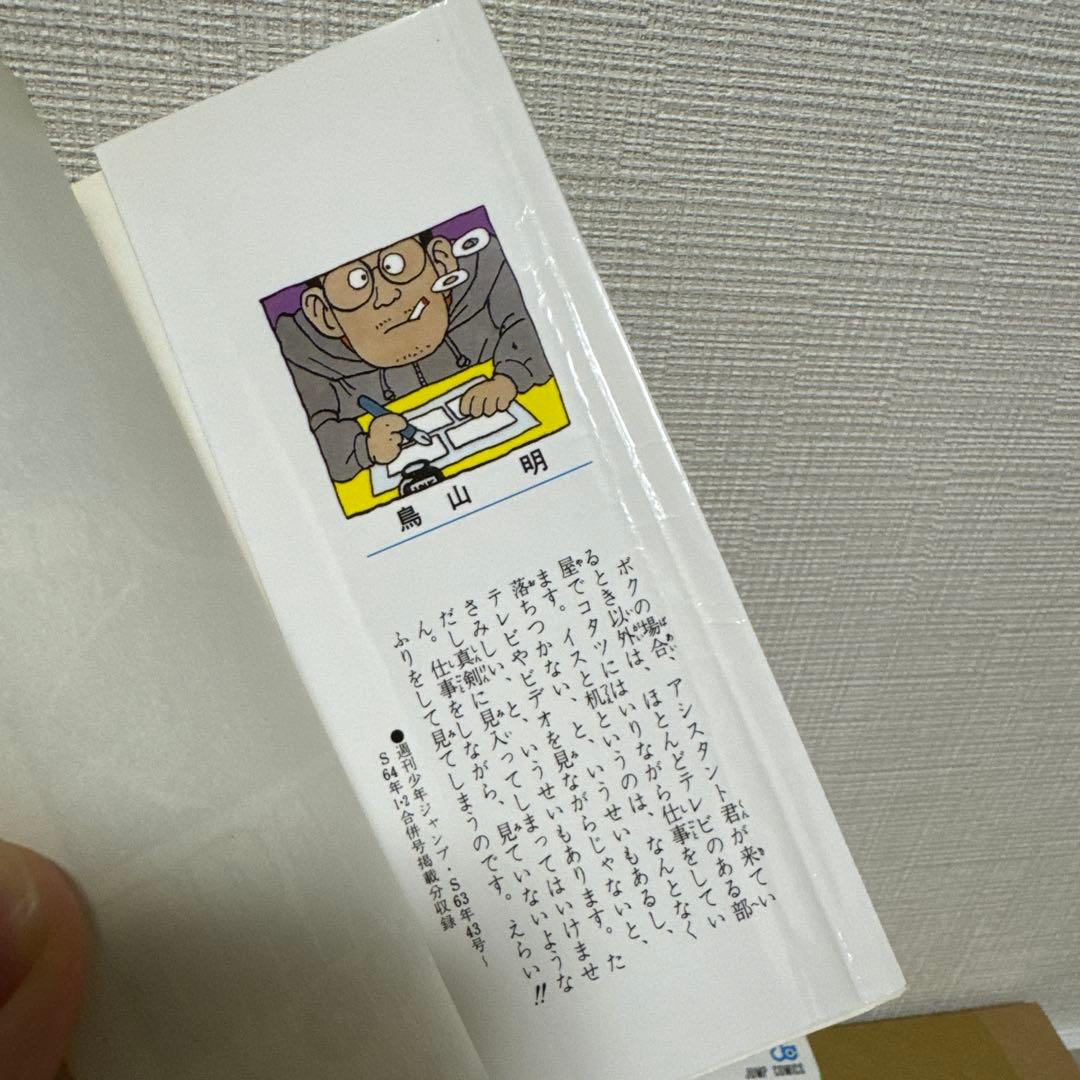 鳥山 明
ボクの場合、アシスタント君が来てい
るとき以外は、ほとんどテレビのある部
屋でコタツにはいりながら仕事をしてい
ます。イスと机というのは、なんとなく
落ちつかない、と、いうせいもあるし、
テレビやビデオを見ながらじゃないと、
さみしい、と、いうせいもあります。た
だし真剣に見入ってしまってはいけませ
ん。仕事をしながら、見ていないような
ふりをして見てしまうのです。えらい!!
●週刊少年ジャンプ・S63年43号~
S64年1・2合併号掲載分収録
JUMP COMICS